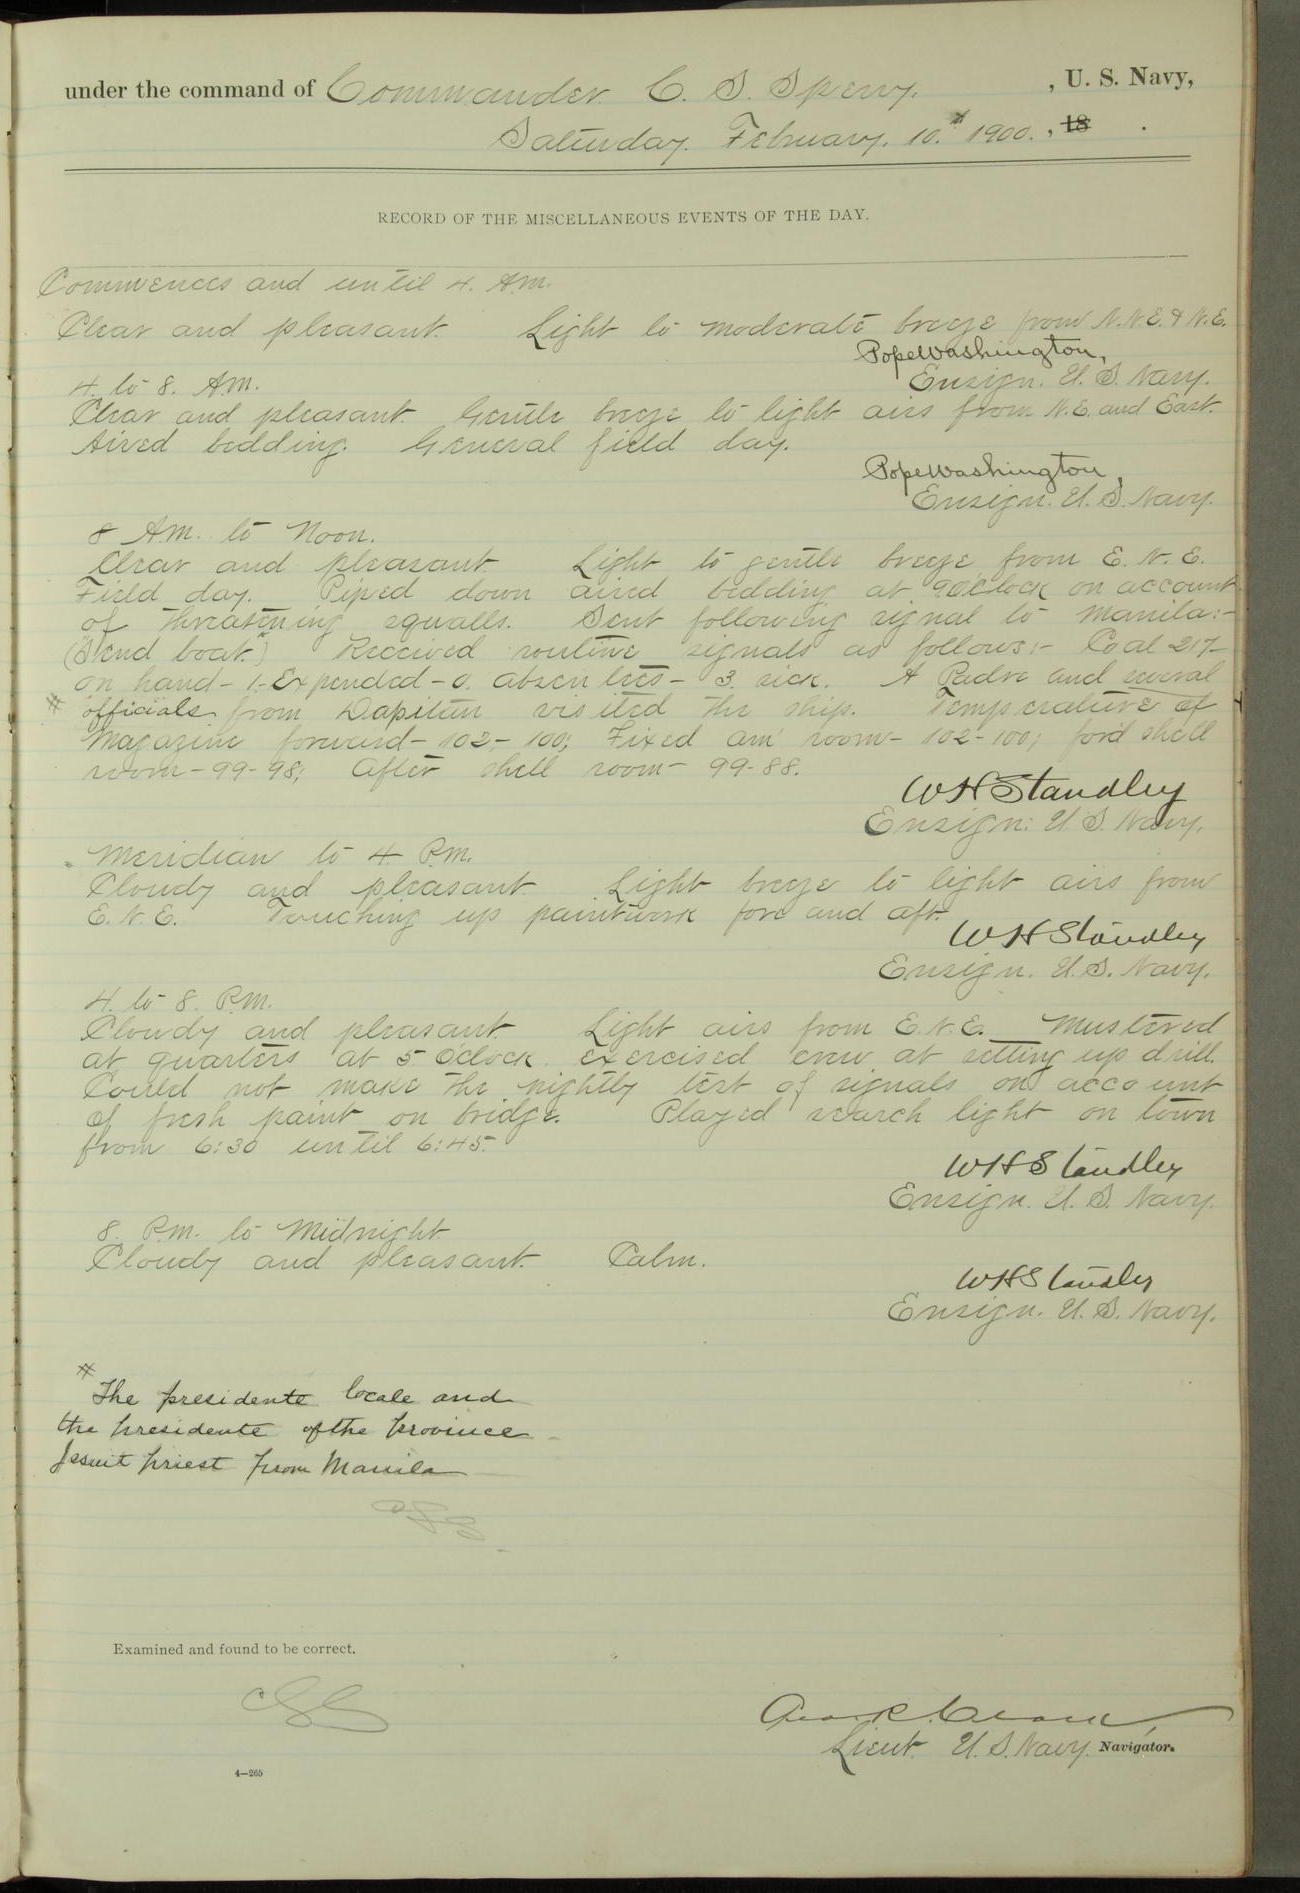 under the command of Commander C. S. Sperry, , U. S. Navy,
Saturday. February. 10.th 1900. , 18 .
RECORD OF THE MISCELLANEOUS EVENTS OF THE DAY.
Commences and until 4. A.M.
Clear and pleasant. Light to moderate breeze from N.N.E. & N.E.
Pope Washington,
Ensign. U. S. Navy.
4. to 8. A.M.
Clear and pleasant. Gentle breeze to light airs from N.E. and East.
Aired bedding. General field day.
Pope Washington,
Ensign. U. S. Navy.
8 A.M. to Noon.
Clear and pleasant Light to gentle breeze from E. N. E.
Field day. Piped down aired bedding at 9 O'clock on account
of threatening squalls. Sent following signal to Manila:-
("Send boat.") Received routine signals as follows:- Coal 217-
on hand- 1- Expended- 0. absentees- 3. sick. A Padre and several
# officials from Dapitan visited the ship. Temperature of
Magazine forward- 102- 100; Fixed am' room- 102-100; for'd shell
room- 99-98; After shell room- 99-88.
W H Standley
Ensign: U. S. Navy.
Meridian to 4 P.M.
Cloudy and pleasant Light breeze to light airs from
E. N. E. Touching up paintwork fore and aft.
W H Standley
Ensign. U. S. Navy.
4. to 8. P.M.
Cloudy and pleasant Light airs from E.N.E. Mustered
at quarters at 5 O'clock. exercised crew at setting up drill.
Could not make the nightly test of signals on account
of fresh paint on bridge. Played search light on town
from 6:30 until 6:45.
W H Standley
Ensign. U. S. Navy.
8. P.M. to Midnight
Cloudy and pleasant. Calm.
W H Standley
Ensign. U. S. Navy.
# The presidente locale and
the presidente of the province
Jesuit priest from Manila
CSS
Examined and found to be correct.
CSS
Geo R. Clark,
Lieut. U. S. Navy. Navigator.
4—265